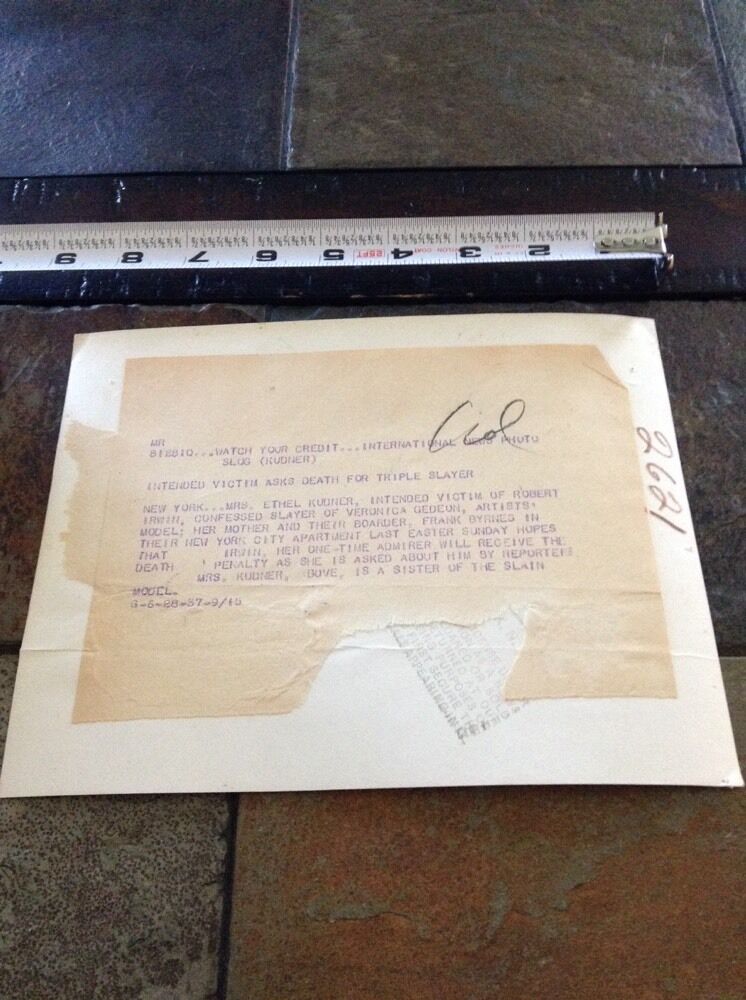 MR
818810...WATCH YOUR CREDIT...INTERNATIONAL NEWS PHOTO
SLUG (KUDNER)
INTENDED VICTIM ASKS DEATH FOR TRIPLE SLAYER
NEW YORK...MRS. ETHEL KUDNER, INTENDED VICTIM OF ROBERT
IRWIN, CONFESSED SLAYER OF VERONICA GEDEON, ARTISTS'
MODEL; HER MOTHER AND THEIR BOARDER, FRANK BYRNES IN
THEIR NEW YORK CITY APARTMENT LAST EASTER SUNDAY HOPES
THAT IRWIN, HER ONE-TIME ADMIRER WILL RECEIVE THE
DEATH PENALTY AS SHE IS ASKED ABOUT HIM BY REPORTERS
MRS. KUDNER, BOVE, IS A SISTER OF THE SLAIN
MODEL.
6-28-37-9/15
2621
9 8 7 6 5 25FT 4 3 2
FIRST SECURE THE
APPEARING IN